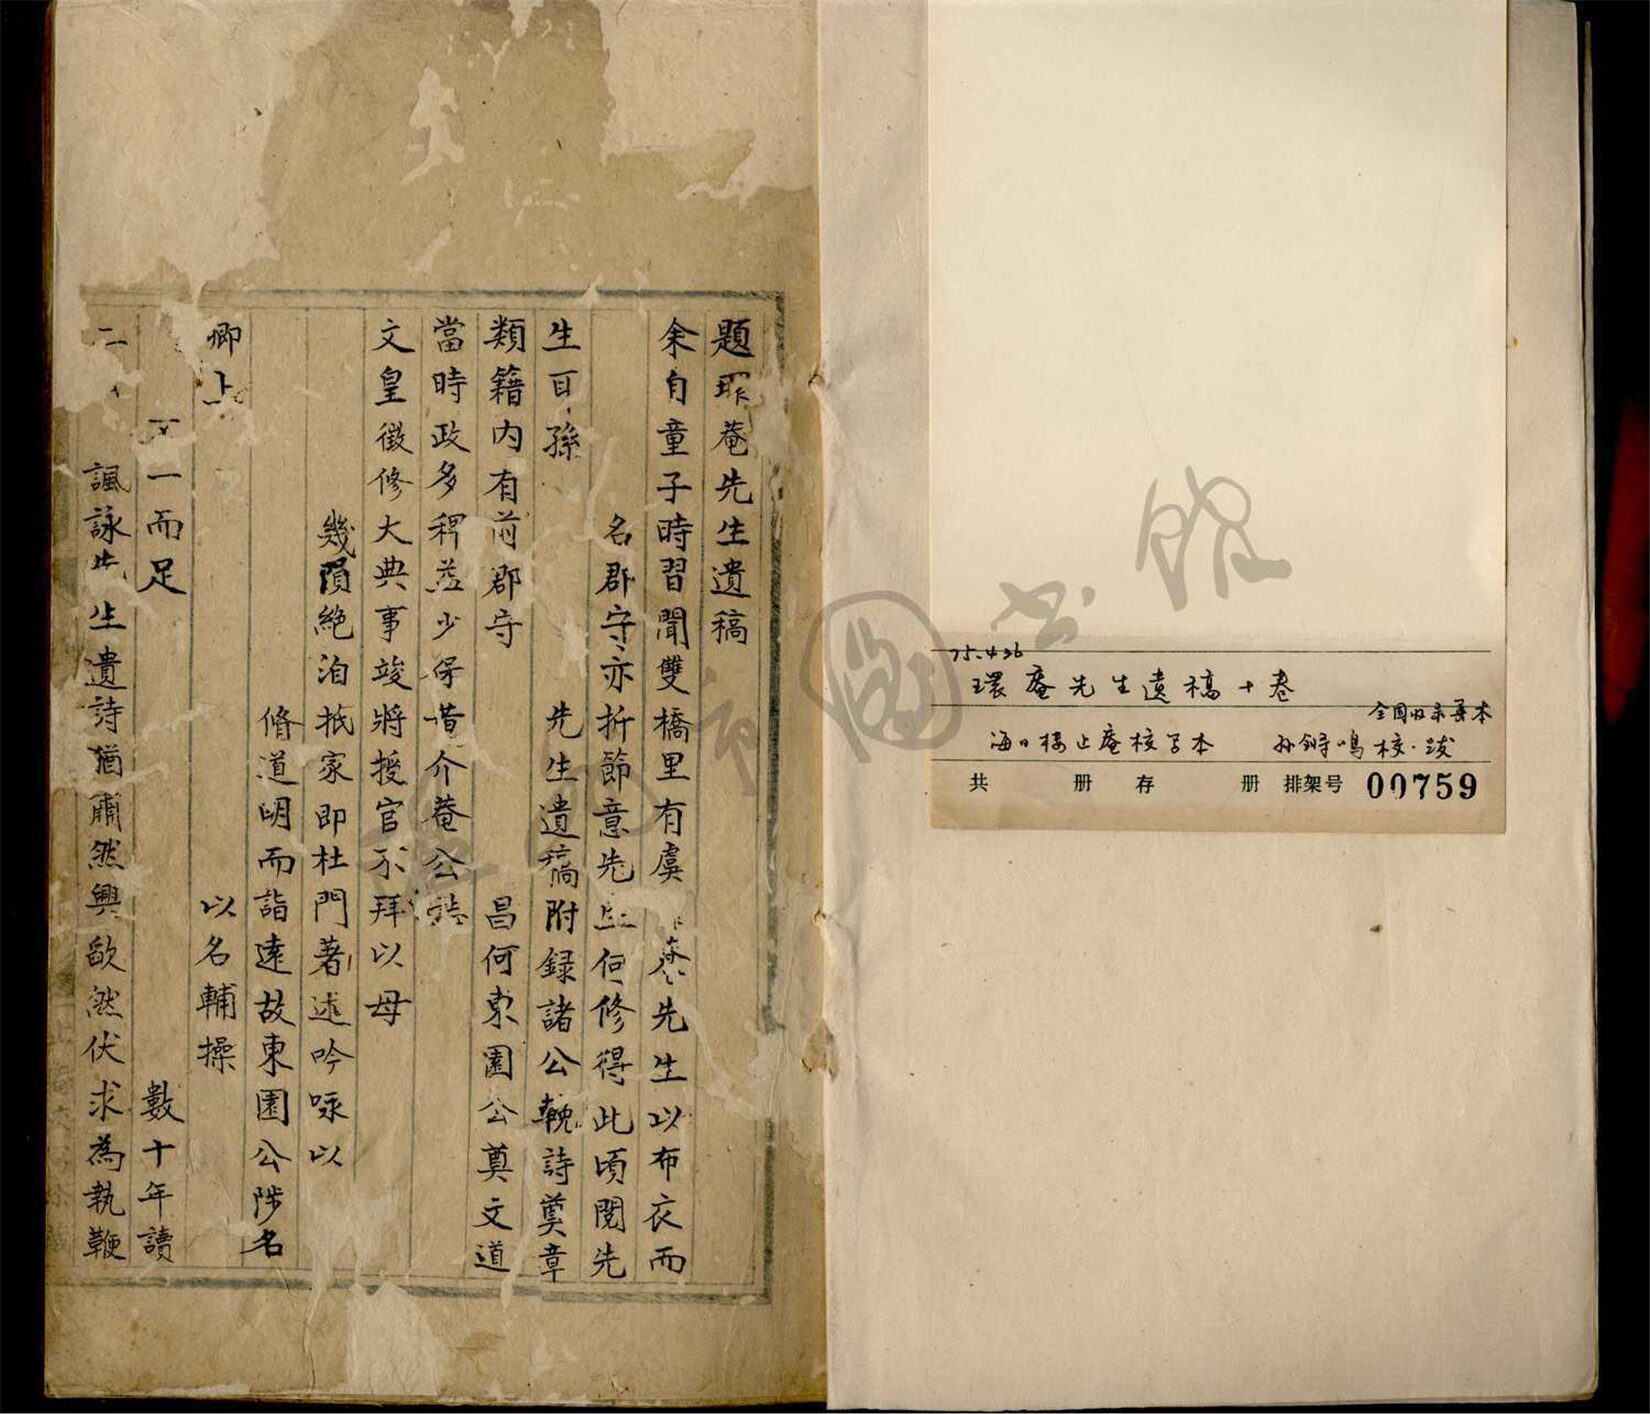 題 菴先生遺稿
余自童子時習聞雙橋里有虞 菴先生以布衣而
名郡守亦折節意先 何修得此頃閱先
生 孫 先生遺稿附録諸公輓詩奠章
類籍内有前郡守 昌何東園公奠文道
當時政多稗益少保黄介菴公誌
文皇徵修大典事竣將授官不拜以母
幾隕絶洎抵家即杜門著述吟咏以
脩道明而詣遠故東園公陟名
卿 以名輔操
一而足 數十年讀
諷詠先生遺詩猶肅然興歛然伏求為執鞭
75.4.26
環庵先生遺稿十卷
海日楼止庵校写本 孙锵鳴校·跋
共 册 存 册 排架号 00759